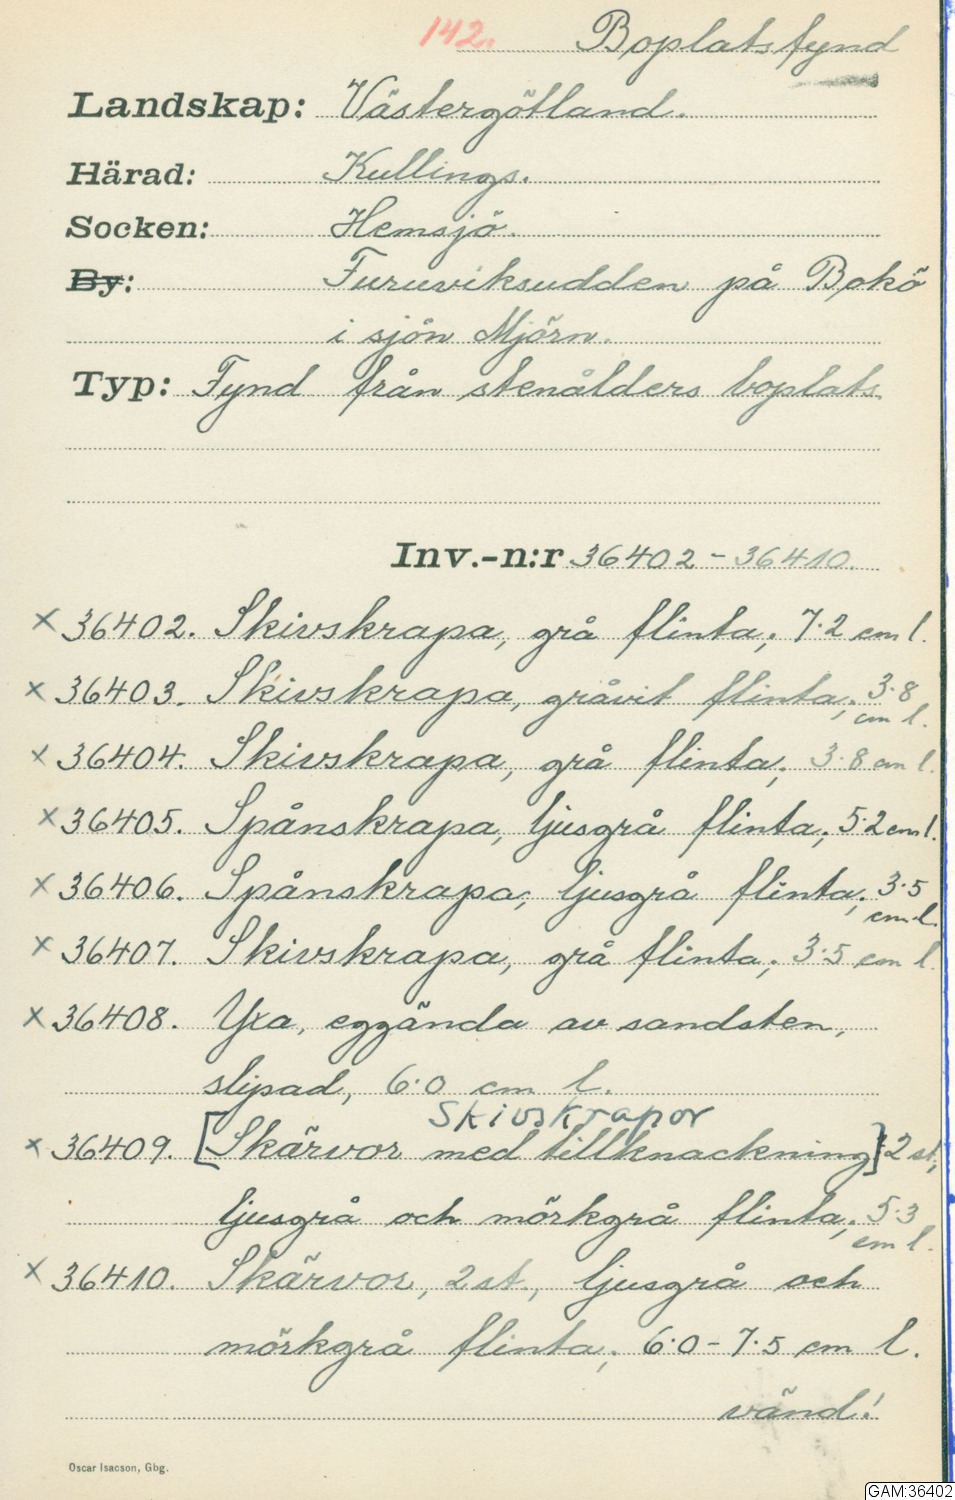 142. Boplatsfynd
Landskap: Västergötland.
Härad: Kullings.
Socken: Hemsjö.
By: Furuviksudden på Bokö
i sjön Mjörn.
Typ: Fynd från stenålders boplats
Inv.-n:r 36402 - 36410.
x 36402. Skivskrapa, grå flinta; 7·2 cm l.
x 36403. Skivskrapa, gråvit flinta; 3·8
cm l.
x 36404. Skivskrapa, grå flinta; 3·8 cm l.
x 36405. Spånskrapa, ljusgrå flinta; 5·2 cm l.
x 36406. Spånskrapa; ljusgrå flinta; 3·5
cm l.
x 36407. Skivskrapa, grå flinta; 3·5 cm l.
x 36408. Yxa, eggända av sandsten,
slipad, 6·0 cm l.
Skivskrapor
x 36409. [Skärvor med tillknackning] 2 st,
ljusgrå och mörkgrå flinta; 5·3
cm l.
x 36410. Skärvor, 2 st., ljusgrå och
mörkgrå flinta; 6·0 - 7·5 cm l.
vänd!
Oscar Isacson, Gbg.
GAM:36402